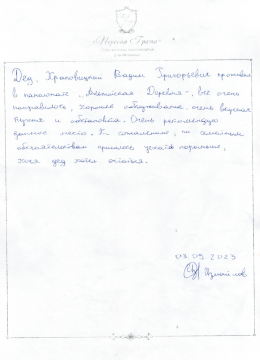 Дед, Храповицкий Вадим Григорьевич проживал
в пансионате „Акапойская Деревня", все очень
понравилось, хорошее обслуживание, очень вкусная
кухня и обстановка. Очень рекомендую
данное место. К сожалению, по семейным
обстоятельствам пришлось уехать пораньше,
хотя дед хотел остаться.
03.09.2023
Измайлов